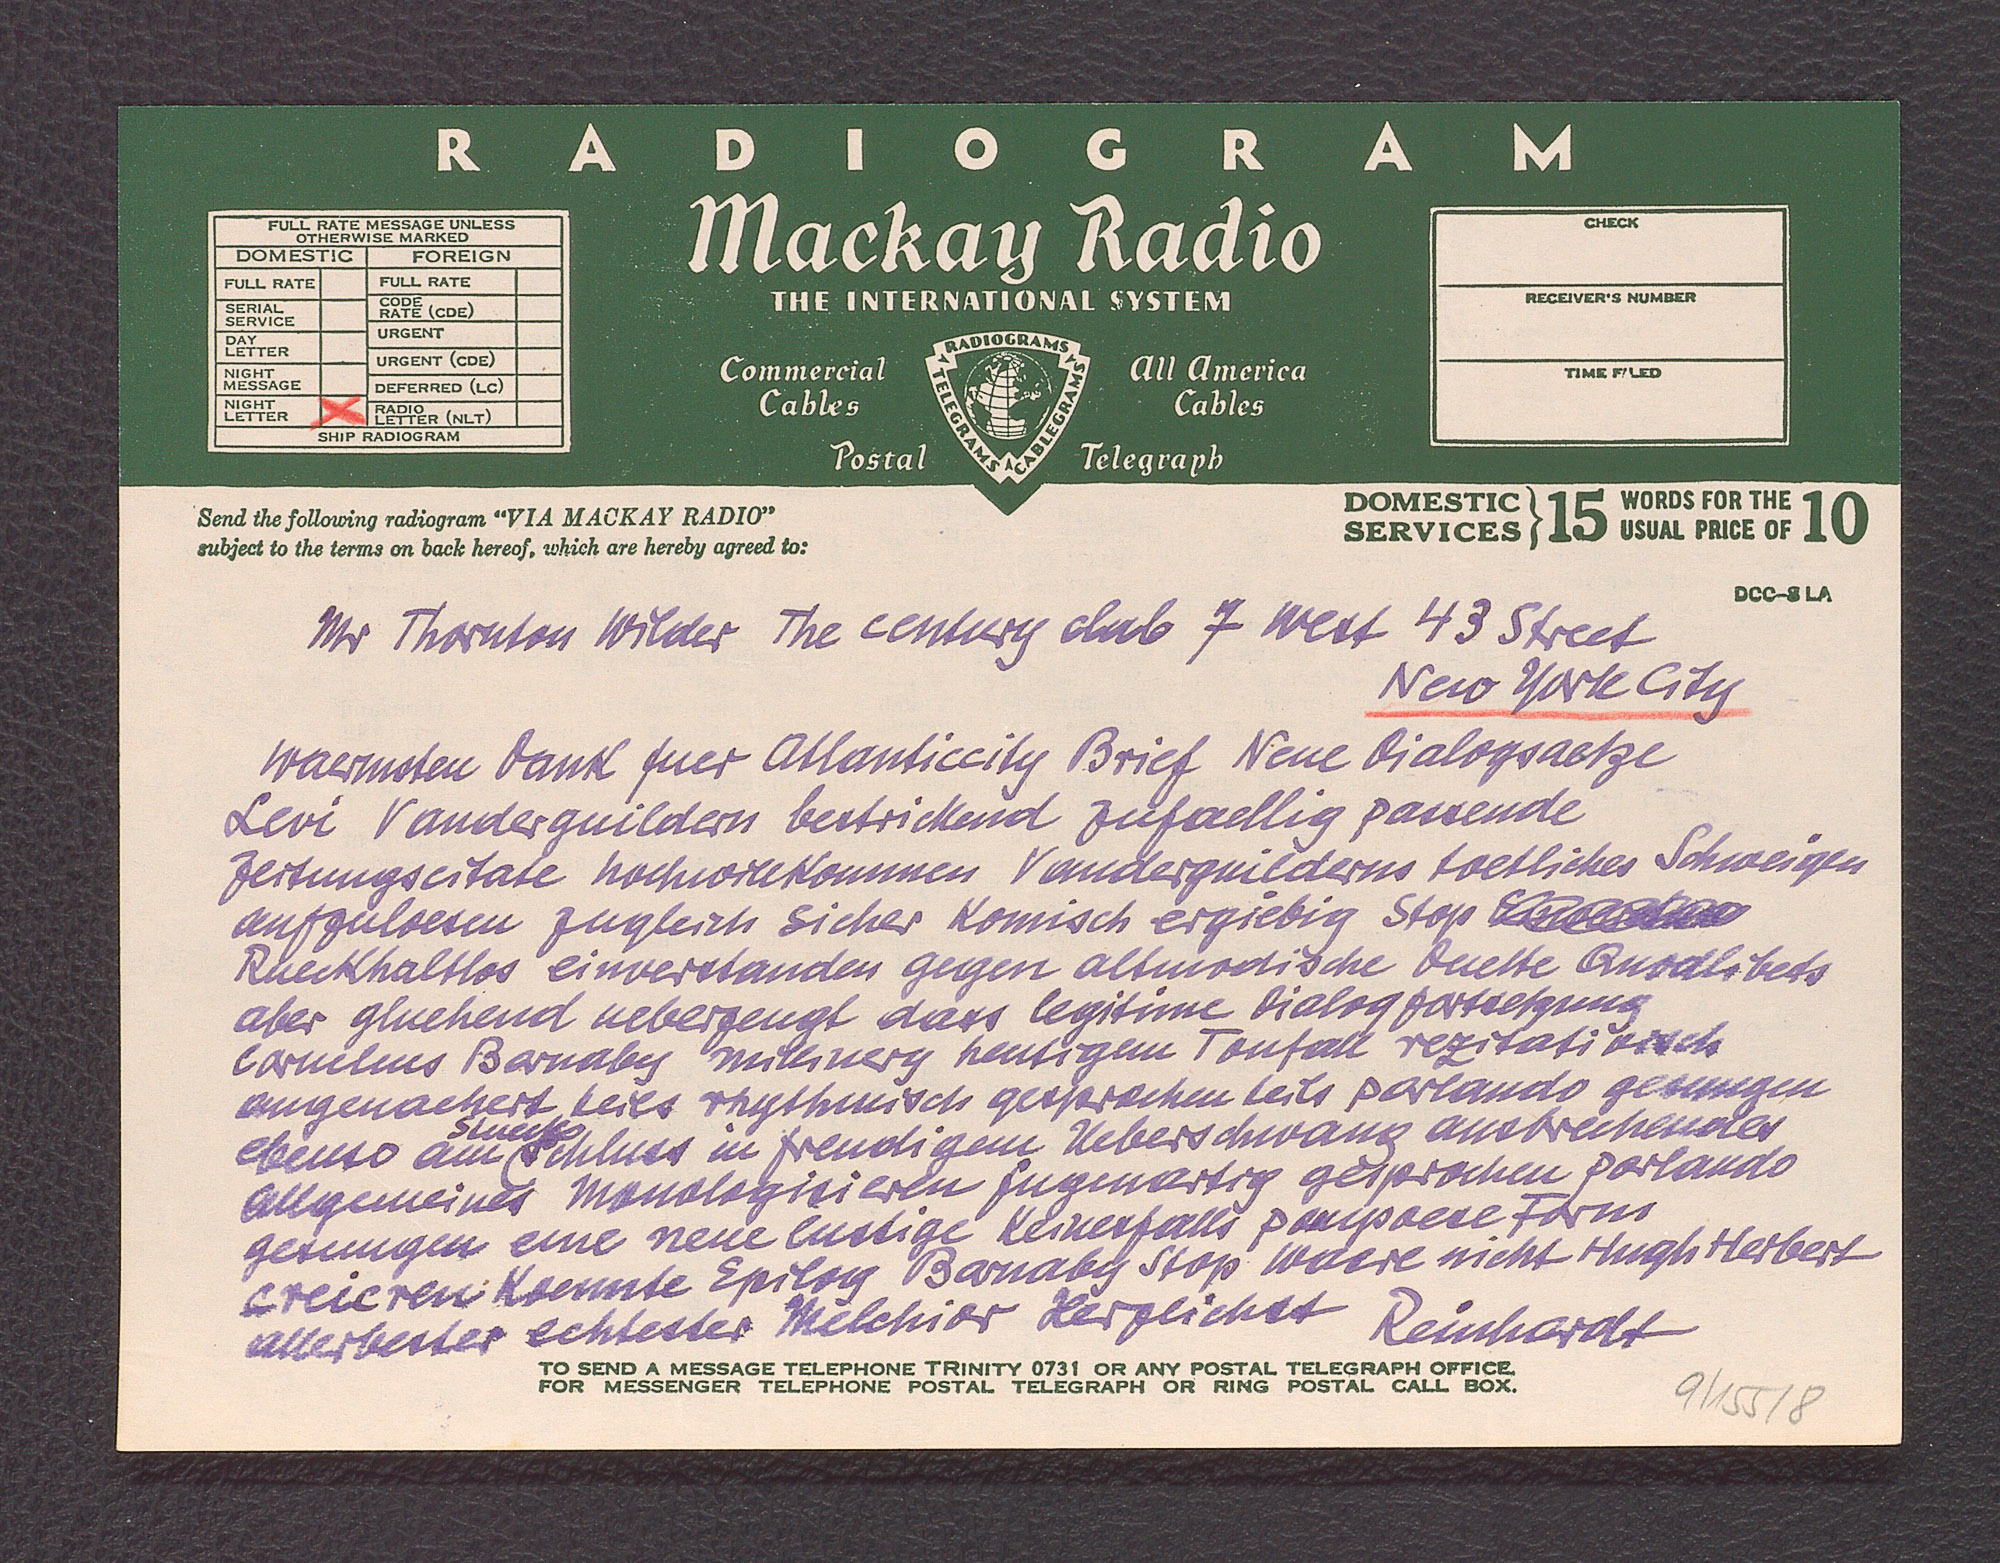 RADIOGRAM
Mackay Radio
THE INTERNATIONAL SYSTEM
FULL RATE MESSAGE UNLESS
OTHERWISE MARKED
DOMESTIC FOREIGN
FULL RATE FULL RATE
SERIAL SERVICE CODE RATE (CDE)
URGENT
DAY LETTER URGENT (CDE)
NIGHT MESSAGE DEFERRED (LC)
NIGHT LETTER X RADIO LETTER (NLT)
SHIP RADIOGRAM
Commercial Cables
All America Cables
Postal Telegraph
RADIOGRAMS TELEGRAMS CABLEGRAMS
CHECK
RECEIVER'S NUMBER
TIME FILED
Send the following radiogram "VIA MACKAY RADIO"
subject to the terms on back hereof, which are hereby agreed to:
DOMESTIC SERVICES } 15 WORDS FOR THE USUAL PRICE OF 10
DCC-8 LA
Mr Thornton Wilder The century club 7 West 43 Street
New York City
Waermsten Dank fuer Atlanticcity Brief Neue Dialogsaetze
Levi Vanderguildern bestrickend zufaellig passende
Zeitungscitate hochwillkommen Vanderguilderns toetliches Schweigen
aufzuloesen zugleich sicher komisch ergiebig Stop
Rueckhaltlos einverstanden gegen altmodische Duette Quodlibets
aber gluehend ueberzeugt dass legitime Dialogfortsetzung
Cornelius Barnaby Millinery heutigem Tonfall rezitativisch
angenaehert teils rhythmisch gesprochen teils parlando gesungen
ebenso am Stueckschluss in freudigem Ueberschwang ausbrechendes
Allgemeines Monologisieren fugenartig gesprochen parlando
gesungen eine neue lustige keinesfalls pompoese Form
creieren Koennte Epilog Barnaby Stop Waere nicht Hugh Herbert
allerbester echtester Melchior Herzlichst Reinhardt
TO SEND A MESSAGE TELEPHONE TRINITY 0731 OR ANY POSTAL TELEGRAPH OFFICE.
FOR MESSENGER TELEPHONE POSTAL TELEGRAPH OR RING POSTAL CALL BOX.
9/155/8